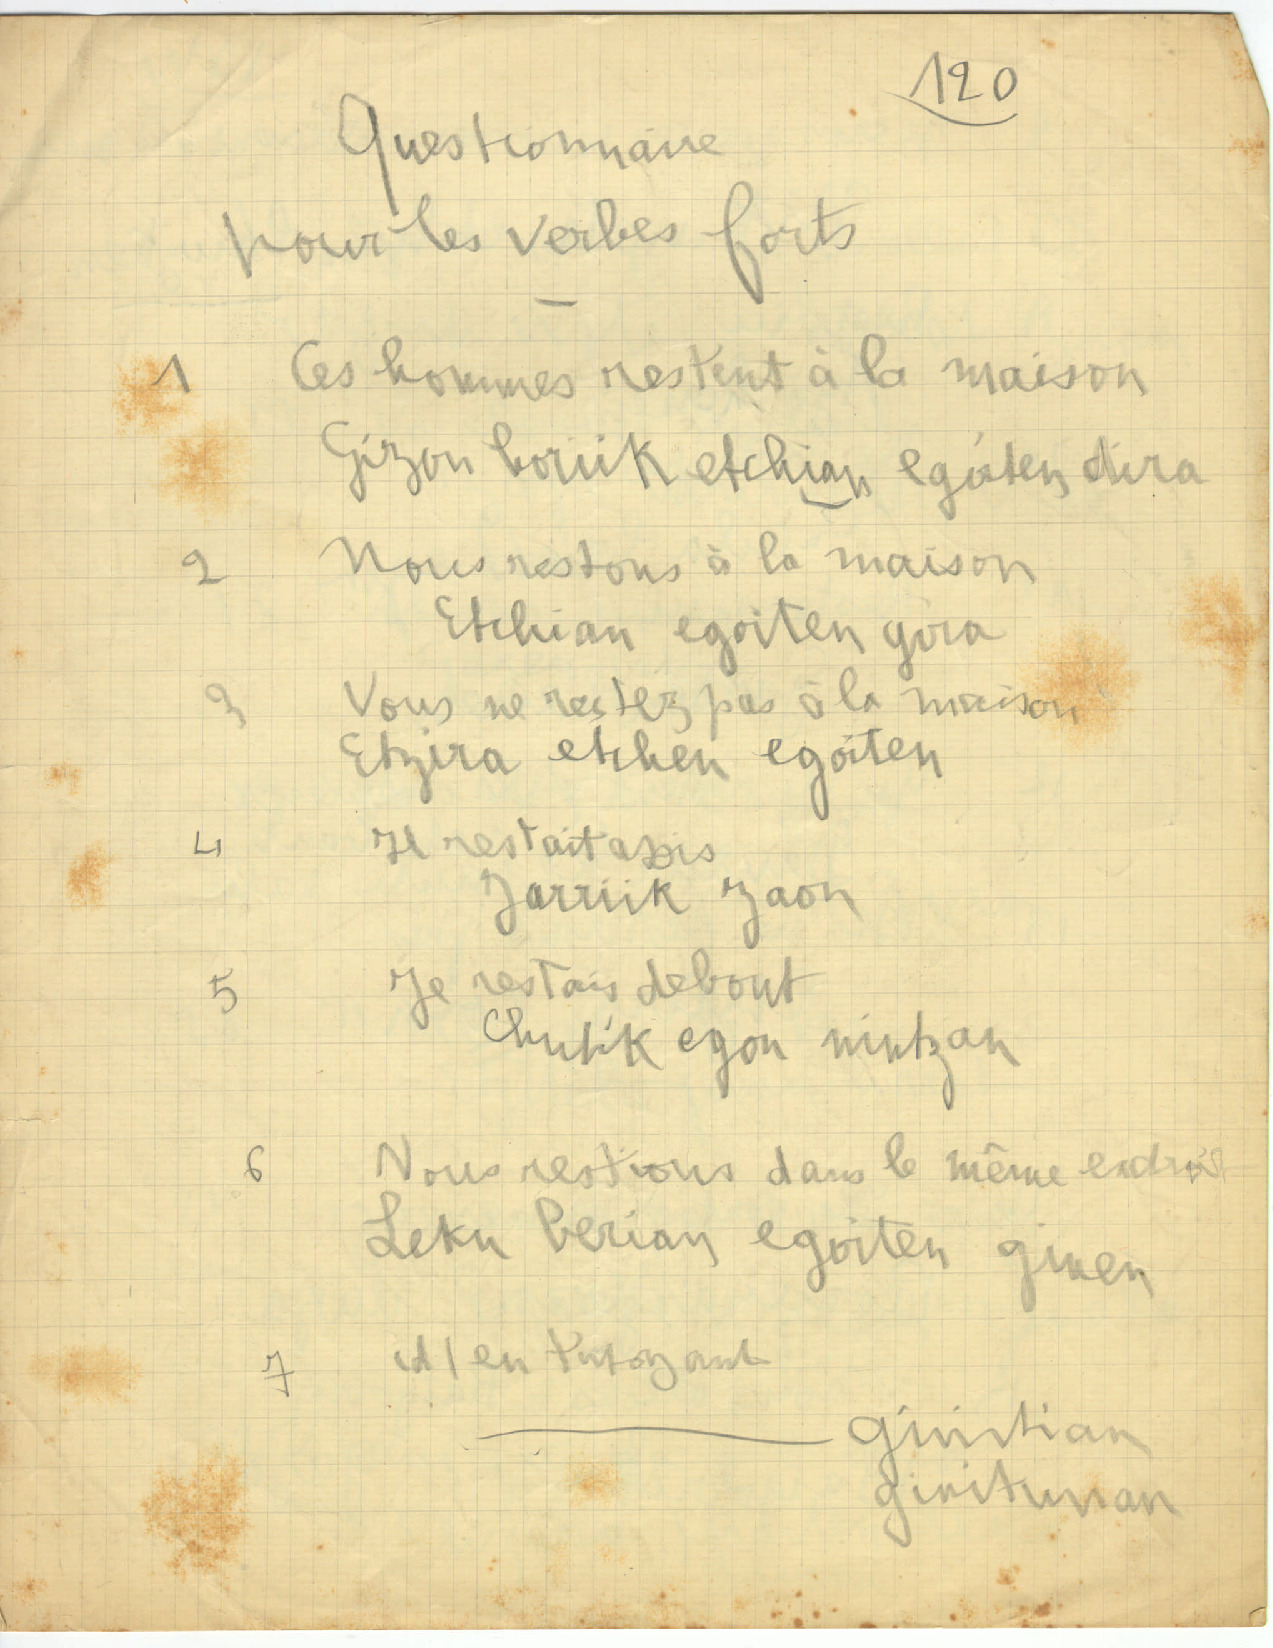 120
Questionnaire
pour les verbes forts
1 Ces hommes restent à la maison
Gizon horiik etchian egoiten dira
2 Nous restons à la maison
Etchian egoiten gira
3 Vous ne restez pas à la maison
Etzira etchen egoiten
4 Il restait assis
Jarriik zaon
5 Je restais debout
Chutik egon nintzan
6 Nous restions dans le même endroit
Leku berian egoiten ginen
7 id/ en tutoyant
ginitian
ginitunan